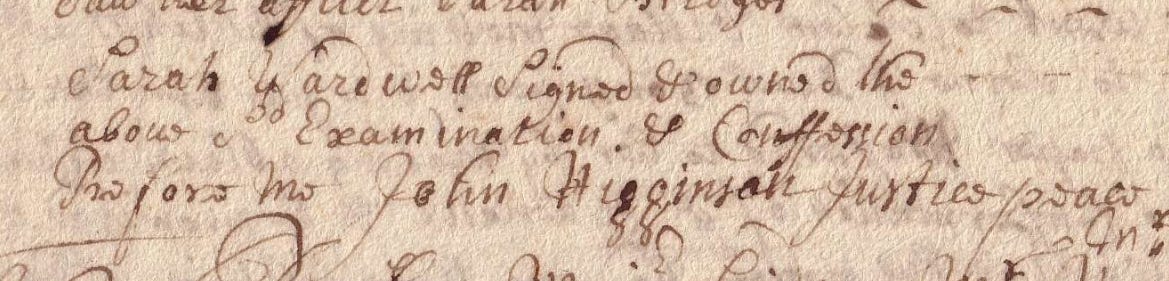 saw her afflict Sarah Bridges
Sarah Wardwell Signed & owned the
above sd Examination. & Confession
Before me John Higginson Justice peace